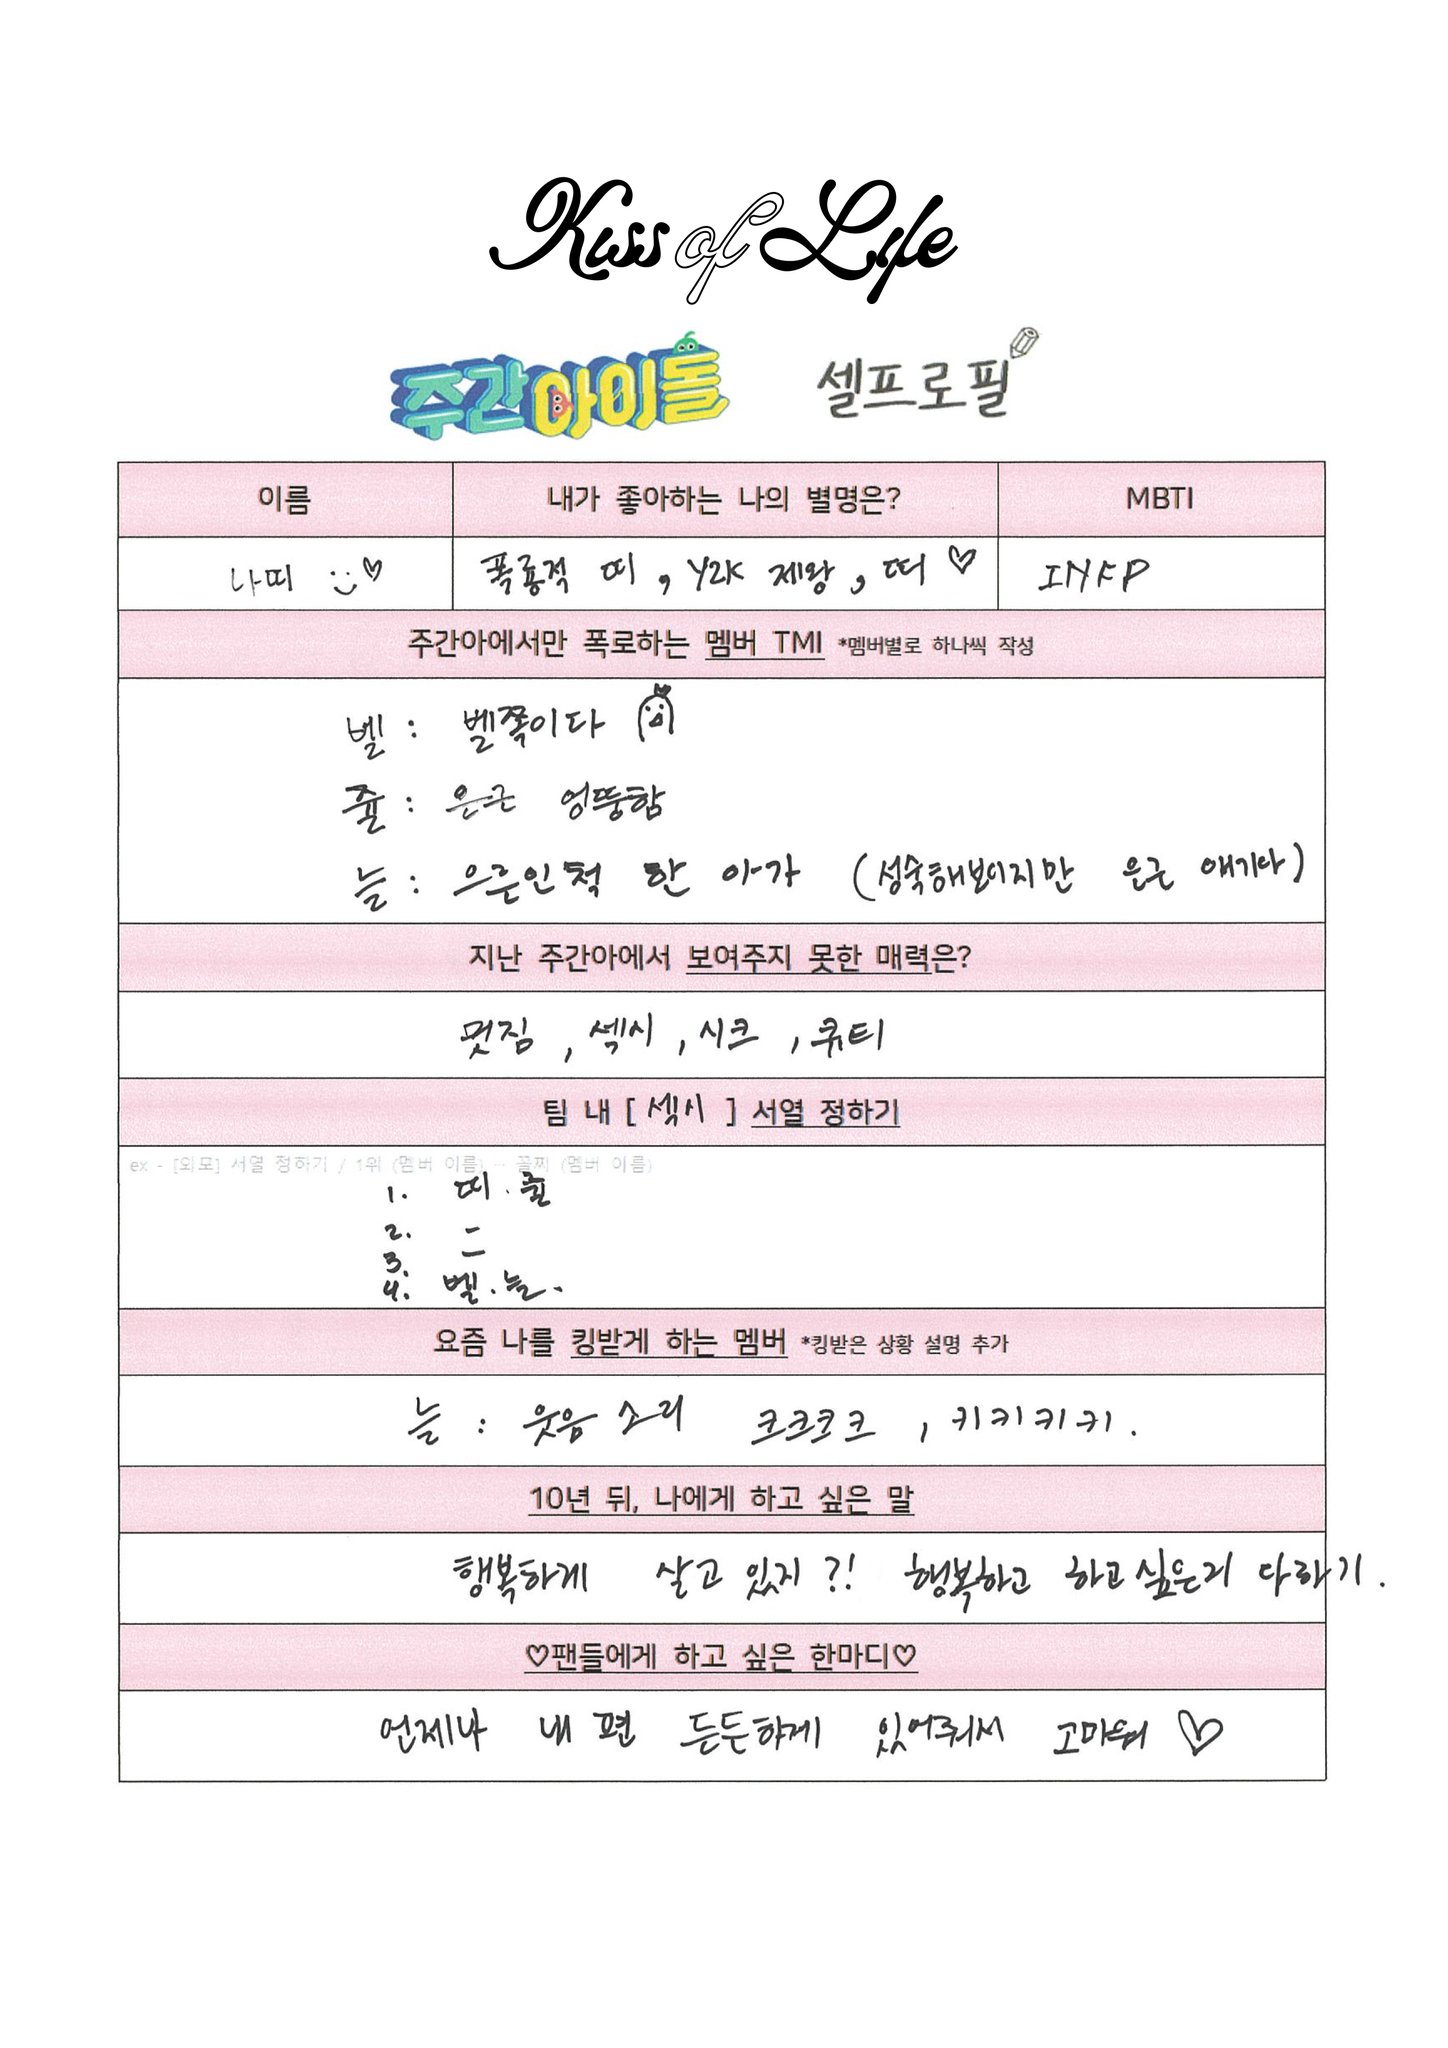 Kiss of Life
주간아이돌 셀프로필
이름 내가 좋아하는 나의 별명은? MBTI
나띠 폭룡적 띠, Y2K 제왕, 띠 ♡ INFP
주간아에서만 폭로하는 멤버 TMI *멤버별로 하나씩 작성
벨 : 벨쪽이다
쥴 : 은근 엉뚱함
늘 : 으른인척 한 아가 (성숙해보이지만 은근 애기다)
지난 주간아에서 보여주지 못한 매력은?
멋짐, 섹시, 시크, 큐티
팀 내 [ 섹시 ] 서열 정하기
ex - [외모] 서열 정하기 / 1위 (멤버 이름) ··· 꼴찌 (멤버 이름)
1. 띠. 쥴
2. 二
3.
4. 벨. 늘.
요즘 나를 킹받게 하는 멤버 *킹받은 상황 설명 추가
늘 : 웃음 소리 크크크크, 키키키키.
10년 뒤, 나에게 하고 싶은 말
행복하게 살고 있지?! 행복하고 하고싶은거 다하기.
♡팬들에게 하고 싶은 한마디♡
언제나 내 편 든든하게 있어줘서 고마워 ♡